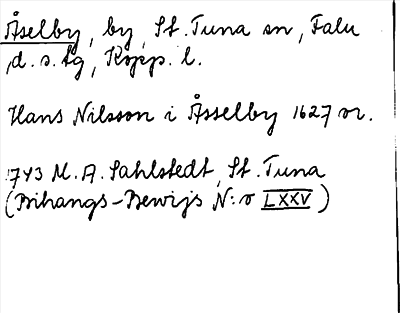 Åselby, by, St. Tuna sn, Falu
d. s. tg, Kopp. l.
Hans Nilsson i Åsselby 1627 or.
1743 M. A. Sahlstedt, St. Tuna
(Bihangs-Bewijs N:o LXXV)